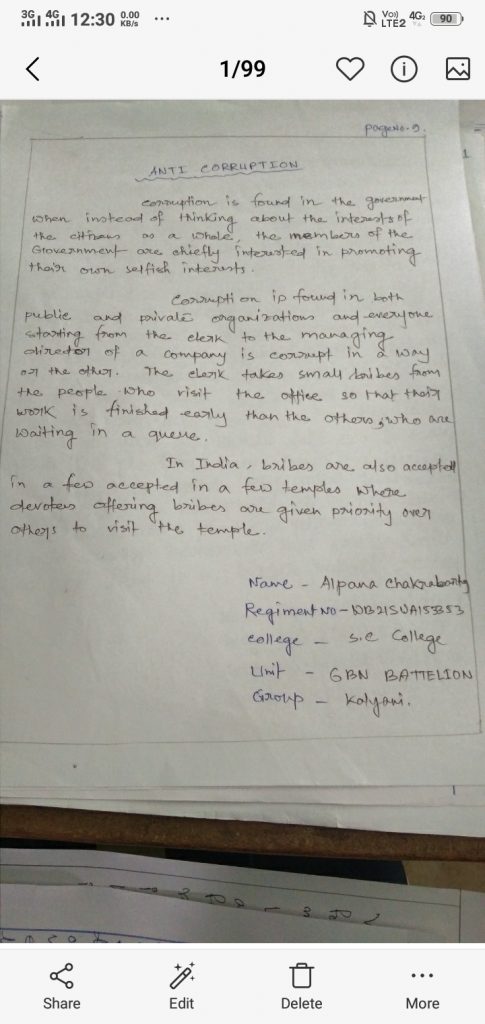 3G 4G 12:30 0.00 KB/s ...
Vo)) LTE2 4G 90
1/99
Page No-9.
ANTI CORRUPTION
Corruption is found in the government
when instead of thinking about the interests of
the citizens as a whole, the members of the
Government are chiefly interested in promoting
their own selfish interests.
Corruption is found in both
public and private organizations and everyone
starting from the clerk to the managing
director of a company is corrupt in a way
or the other. The clerk takes small bribes from
the people who visit the office so that their
work is finished early than the others, who are
waiting in a queue.
In India, bribes are also accepted
in a few accepted in a few temples where
devotees offering bribes are given priority over
others to visit the temple.
Name - Alpana Chakraborty
Regiment No -
College - S.C College
Unit - 6BN BATTELION
Group - Kalyani.
Share Edit Delete More